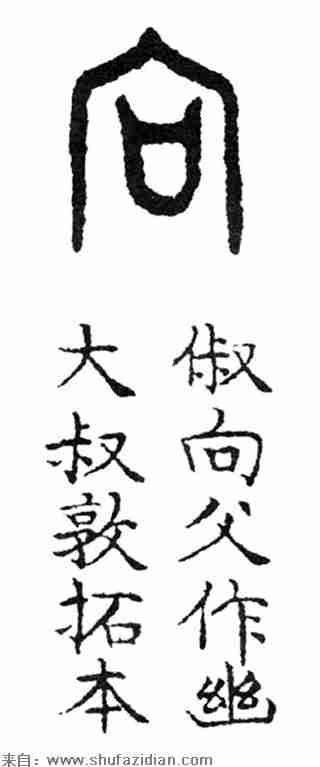 向
俶向父作幽
大叔敦拓本
来自：www.shufazidian.com